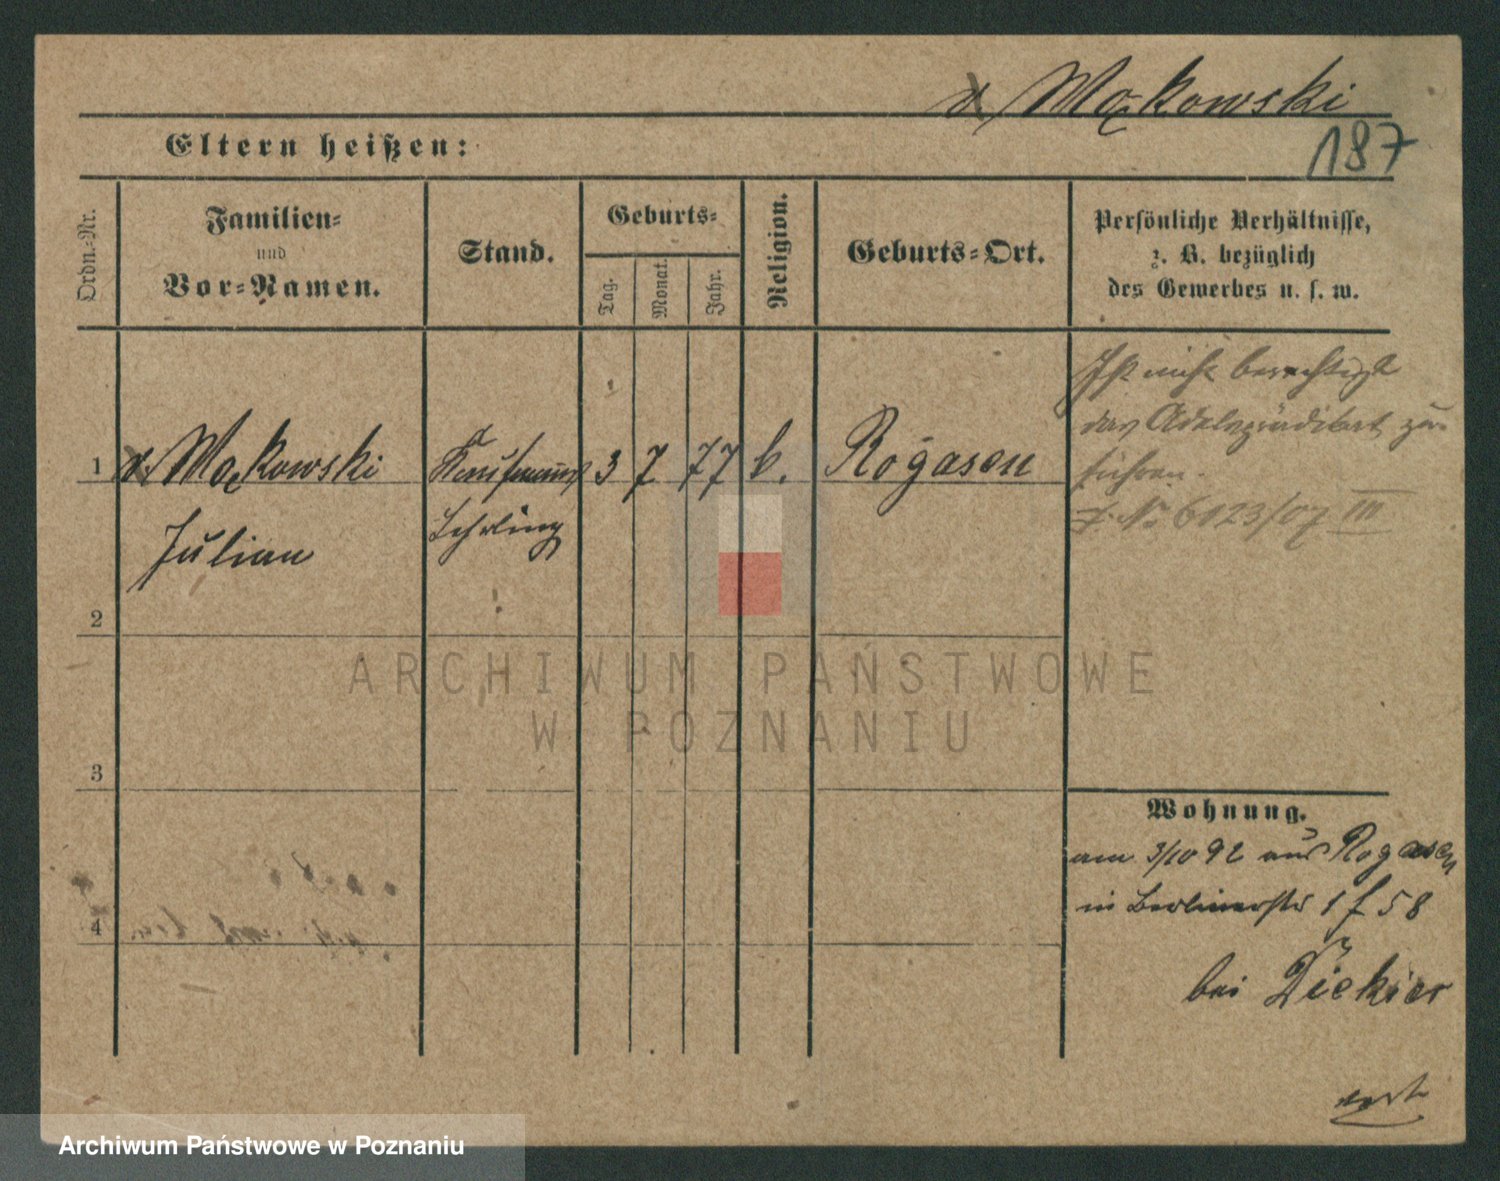 v. Mąkowski
187
Eltern heißen:
Ordn.-Nr.
Familien-
und
Vor-Namen.
Stand.
Geburts-
Tag.
Monat.
Jahr.
Religion.
Geburts-Ort.
Persönliche Verhältnisse,
z. B. bezüglich
des Gewerbes u. s. w.
1
v. Mąkowski
Julian
Kaufmanns
Lehrling
3 7 77
Rogasen
Ist nicht berechtigt
das Adelsprädikat zu
führen.
J. No 6123/07 III
2
3
4
Wohnung.
am 3/10 92 aus Rogasen
in Berlinerstr 1 f 58
bei
ARCHIWUM PAŃSTWOWE
W POZNANIU
Archiwum Państwowe w Poznaniu